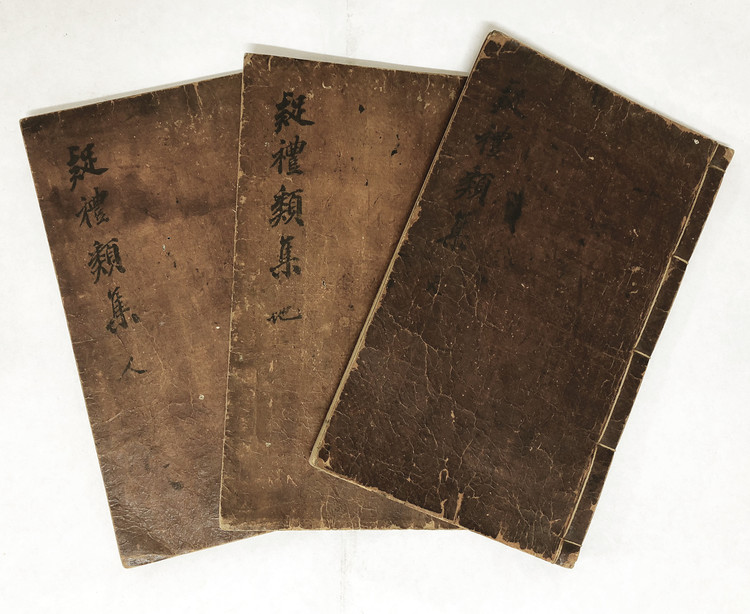 疑禮類集 人
疑禮類集 地
疑禮類集